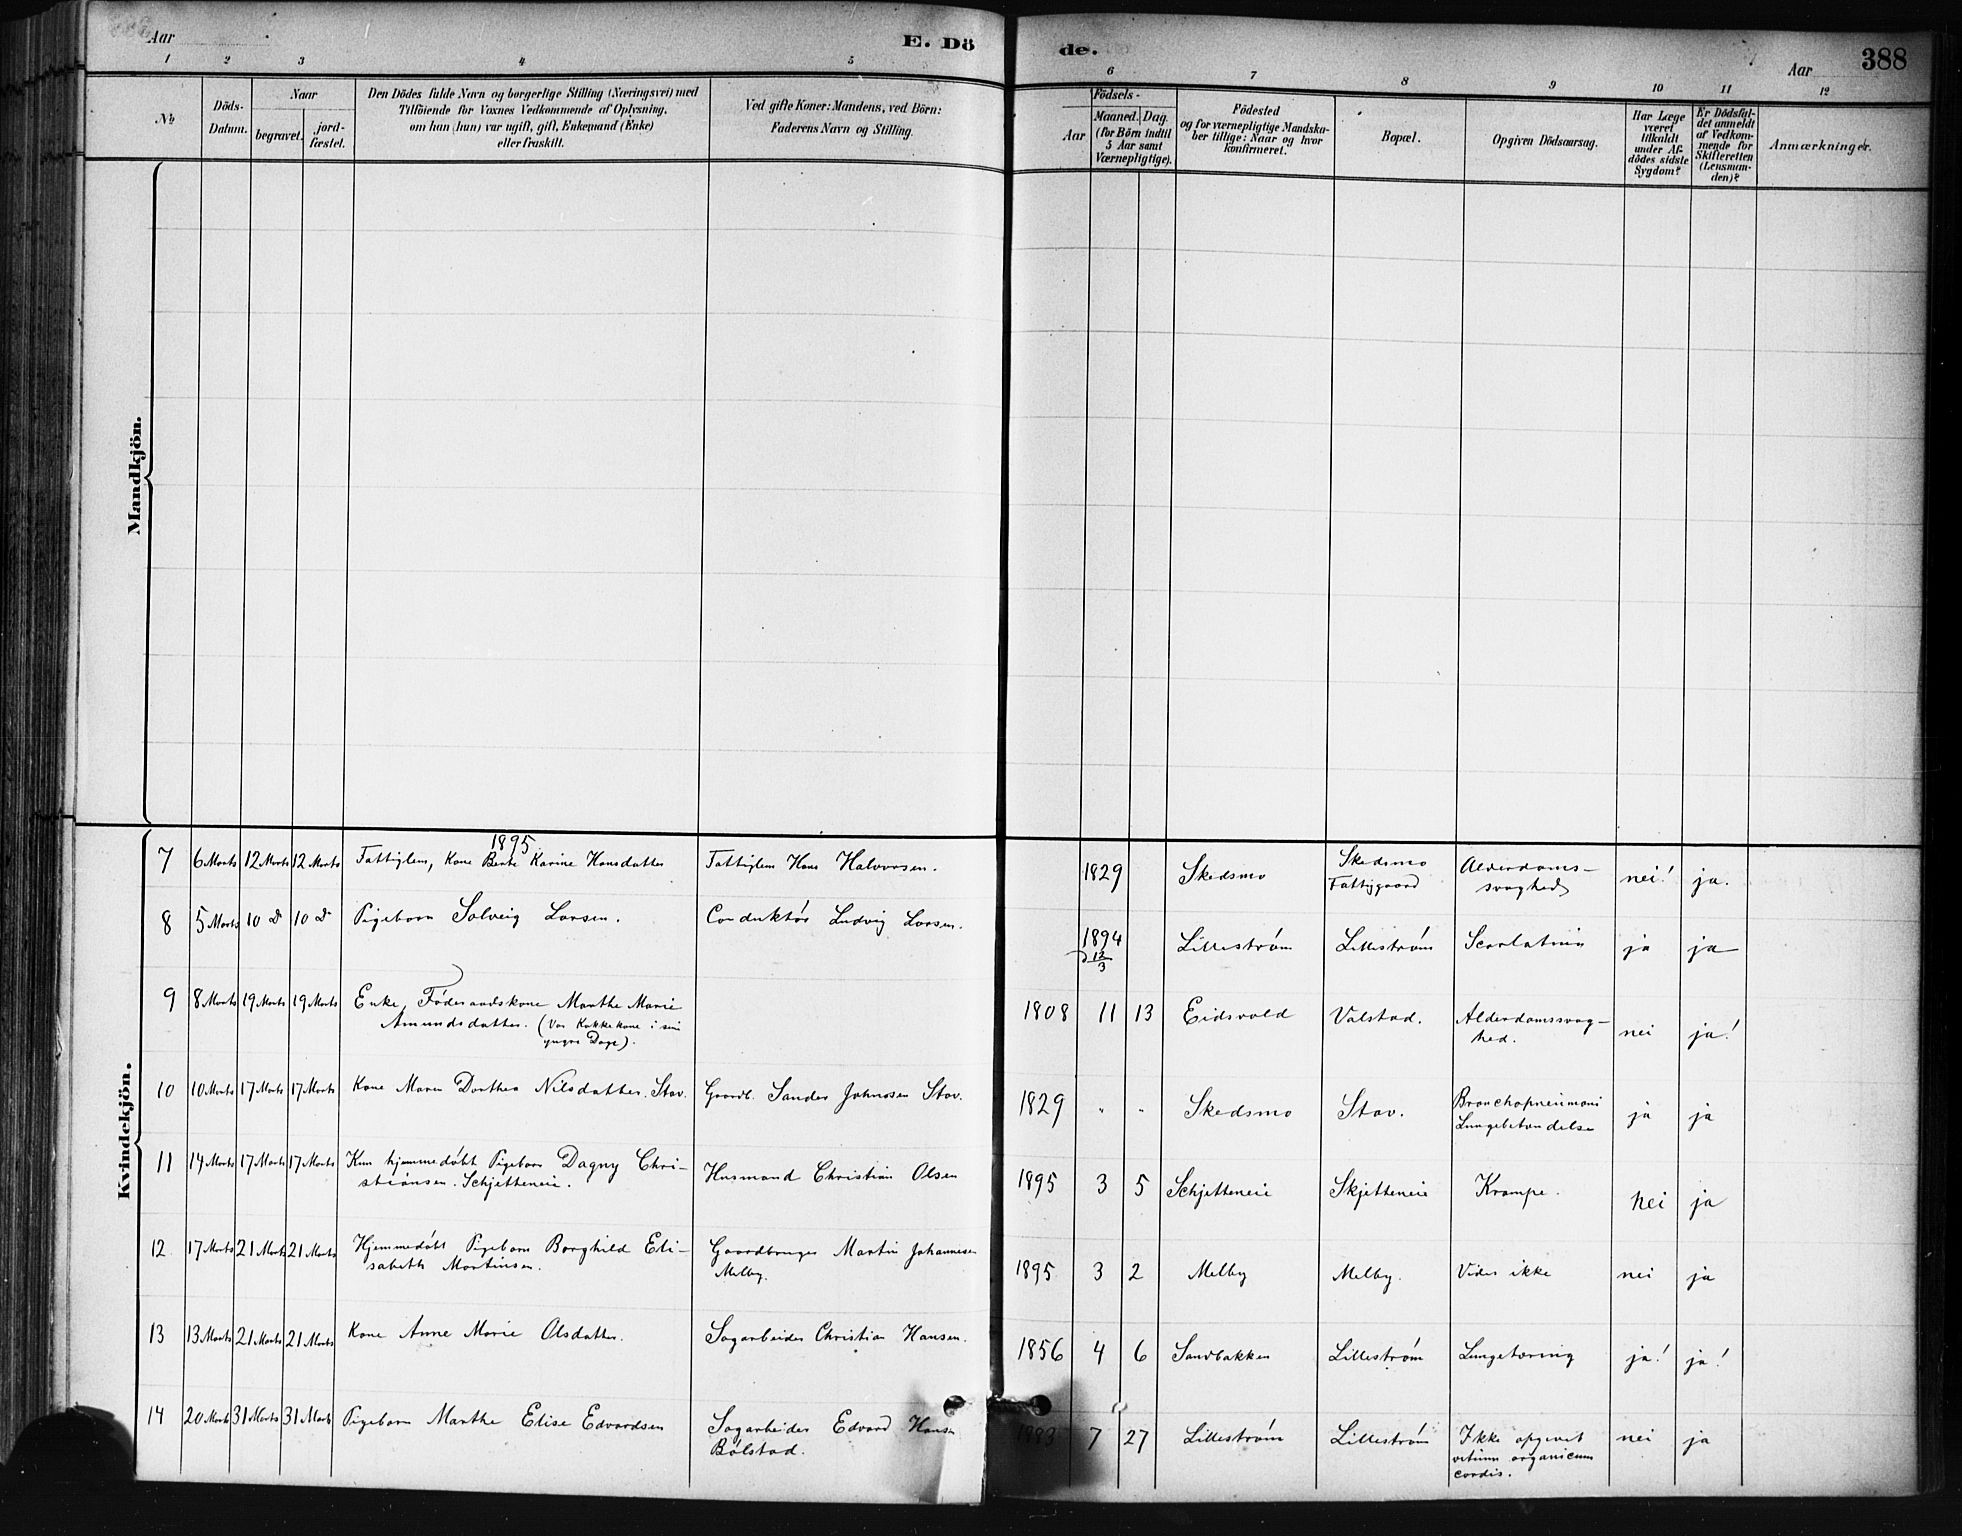 Aar
E. Dö
de.
Aar
388
1 2 3 4 5 6 7 8 9 10 11 12
№
Döds-
Datum.
Naar
begravet.
jord-
fæstet.
Den Dödes fulde Navn og borgerlige Stilling (Næringsvei) med
Tilföiende for Voxnes Vedkommende af Oplysning,
om han (hun) var ugift, gift, Enkemand (Enke)
eller fraskilt.
Ved gifte Koner: Mandens, ved Börn:
Faderens Navn og Stilling.
Födsels-
Aar
Maaned. Dag.
(for Börn indtil
5 Aar samt
Værnepligtige).
Födested
og for værnepligtige Mandska-
ber tillige: Naar og hvor
konfirmeret.
Bopæl.
Opgiven Dödsaarsag.
Har Læge
været
tilkaldt
under Af-
dödes sidste
Sygdom?
Er Dödsfal-
det anmeldt
af Vedkom-
mende for
Skifteretten
(Lensman-
den)?
Anmærkninger.
Mandkjön.
Kvindekjön.
1895
7 6 Marts 12 Marts 12 Marts Fattiglem, Kone Berte Karine Hansdatter Fattiglem Hans Halvorsen. 1829 Skedsmo Skedsmo Fattiggaard Alderdoms-
svaghed nei! ja.
8 5 Marts 10 D 10 D Pigebarn Solveig Larsen. Conduktør Ludvig Larsen. 1894
12/3 Lillestrøm Lillestrøm Scarlatina ja ja
9 8 Marts 19 Marts 19 Marts Enke, Føderaadskone Marthe Marie
Amundsdatter. (Var Kokkekone i sine
yngre Dage). 1808 11 13 Eidsvold Valstad. Alderdomssvag-
hed. nei ja!
10 10 Marts 17 Marts 17 Marts Kone Maren Dorthea Nilsdatter. Stav. Gaardb. Sander Johnssen Stav. 1829 " " Skedsmo Stav. Bronchopneumoni
Lungebetændelse ja ja
11 14 Marts 17 Marts 17 Marts Kun hjemmedøbt Pigebarn Dagny Chri-
stiansen. Schjetteneie. Husmand Christian Olsen 1895 3 5 Schjetteneie Skjetteneie Krampe. nei ja
12 17 Marts 21 Marts 21 Marts Hjemmedøbt Pigebarn Borghild Eli-
sabeth Martinsen. Gaardbruger Martin Johannesen
Melby. 1895 3 2 Melby Melby. Vides ikke nei ja
13 13 Marts 21 Marts 21 Marts Kone Anne Marie Olsdatter. Sagarbeider Christian Hansen. 1856 4 6 Sandbakken Lillestrøm Lungetæring ja! ja!
14 20 Marts 31 Marts 31 Marts Pigebarn Marthe Elise Edvardsen Sagarbeider Edvard Hansen
Bølstad. 1883 7 27 Lillestrøm Lillestrøm Ikke opgivet
vitium organicum
cordis. nei ja